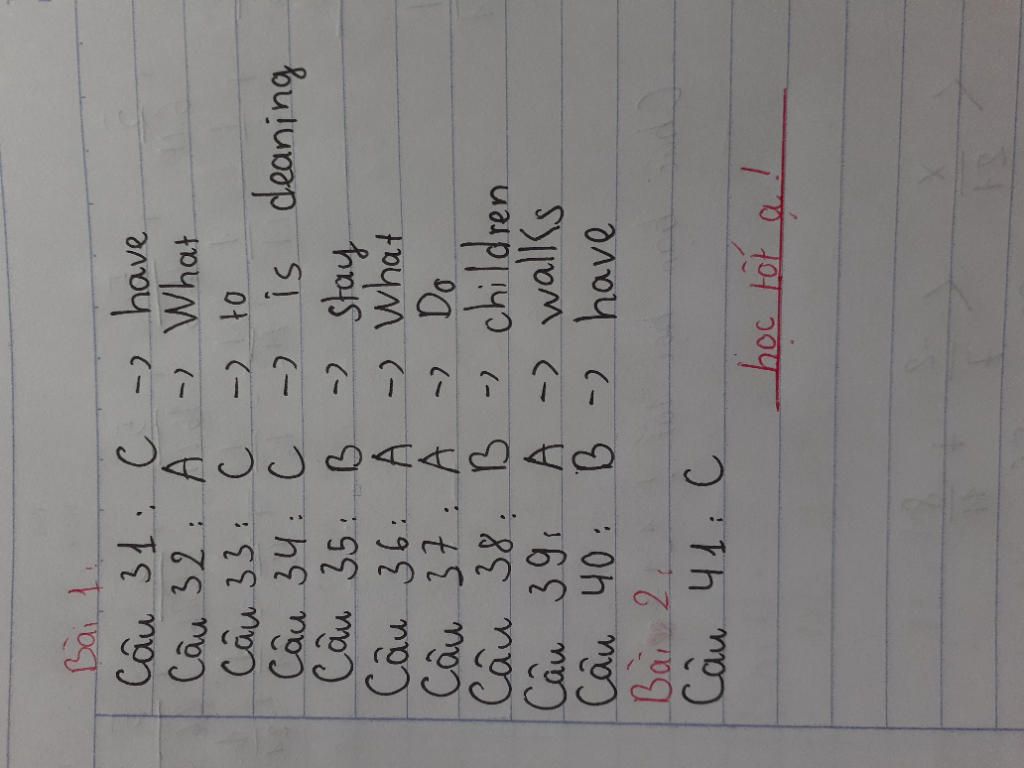 Bài 1:
Câu 31: C -> have
Câu 32: A -> What
Câu 33: C -> to
Câu 34: C -> is cleaning
Câu 35: B -> Stay
Câu 36: A -> What
Câu 37: A -> Do
Câu 38: B -> children
Câu 39: A -> walks
Câu 40: B -> have
Bài 2:
Câu 41: C
học tốt ạ!